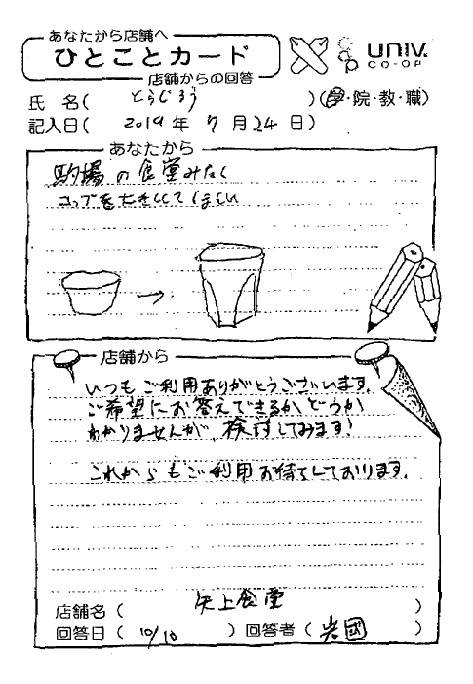 あなたから店舗へ
ひとことカード
店舗からの回答
UNIV.
CO-OP
氏 名( とらじろう )(学・院・教・職)
記入日( 2019 年 7 月 24 日)
あなたから
駒場の食堂みたく
コップを大きくしてほしい
店舗から
いつもご利用ありがとうございます。
ご希望にお答えできるかどうか
わかりませんが、検討してみます!
これからもご利用お待ちしております。
店舗名( 矢上食堂 )
回答日( 10/10 )回答者( 岩國 )